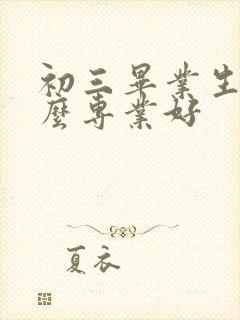 初三畢業生
麼專業好
夏衣